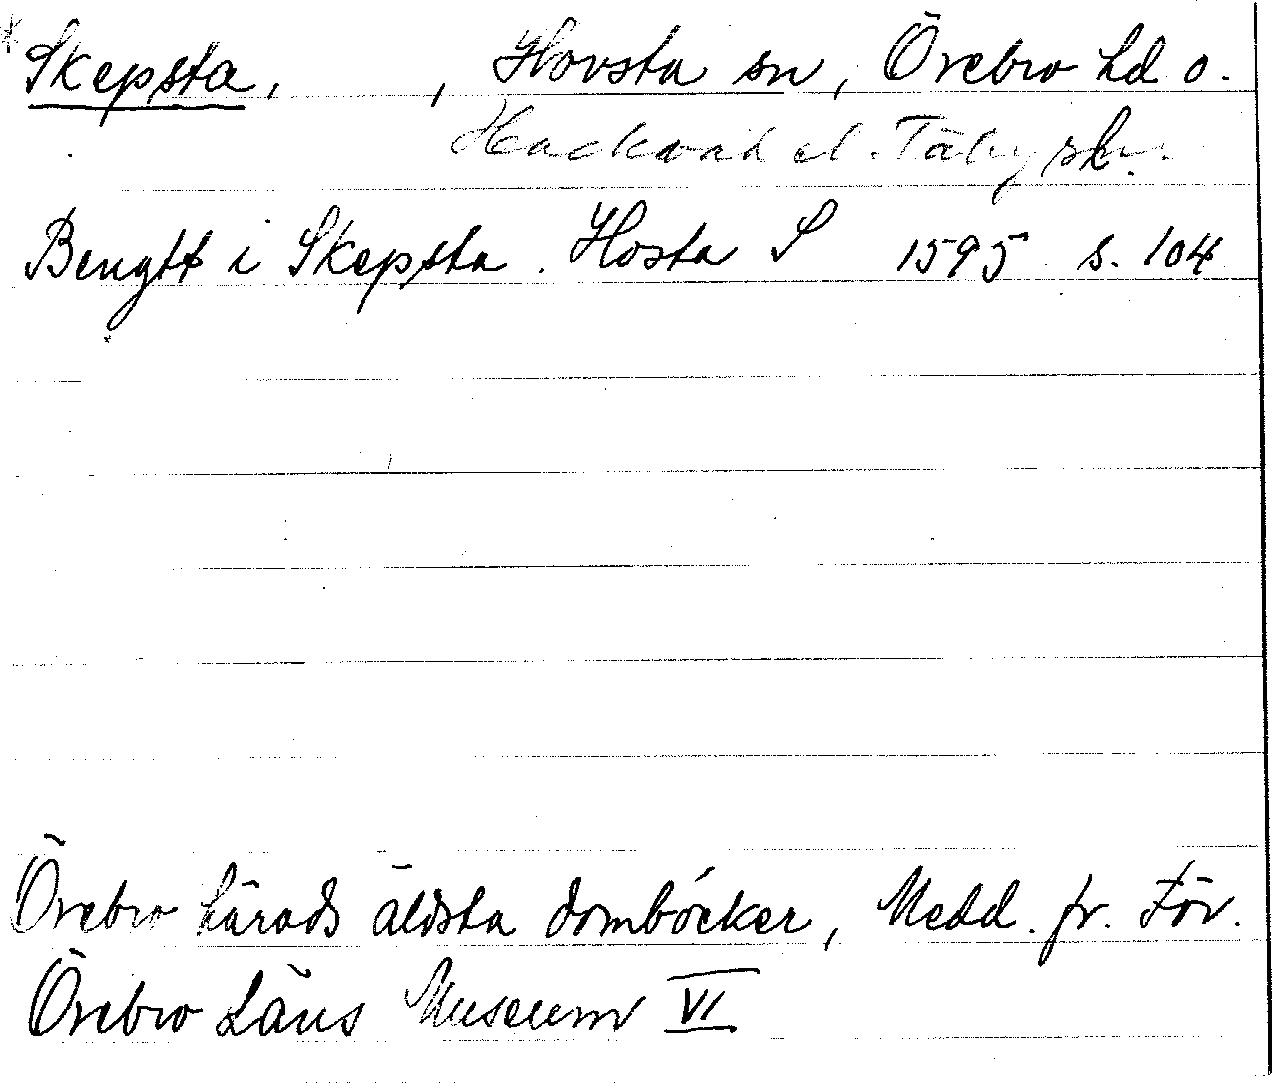 * Skepsta, , Hovsta sn, Örebro hd o.
Hackvad el. Täby skn.
Bengtt i Skepsta. Hosta S 1595 s. 104
Örebro härads äldsta domböcker, Medd. fr. För.
Örebro Läns Museum VI